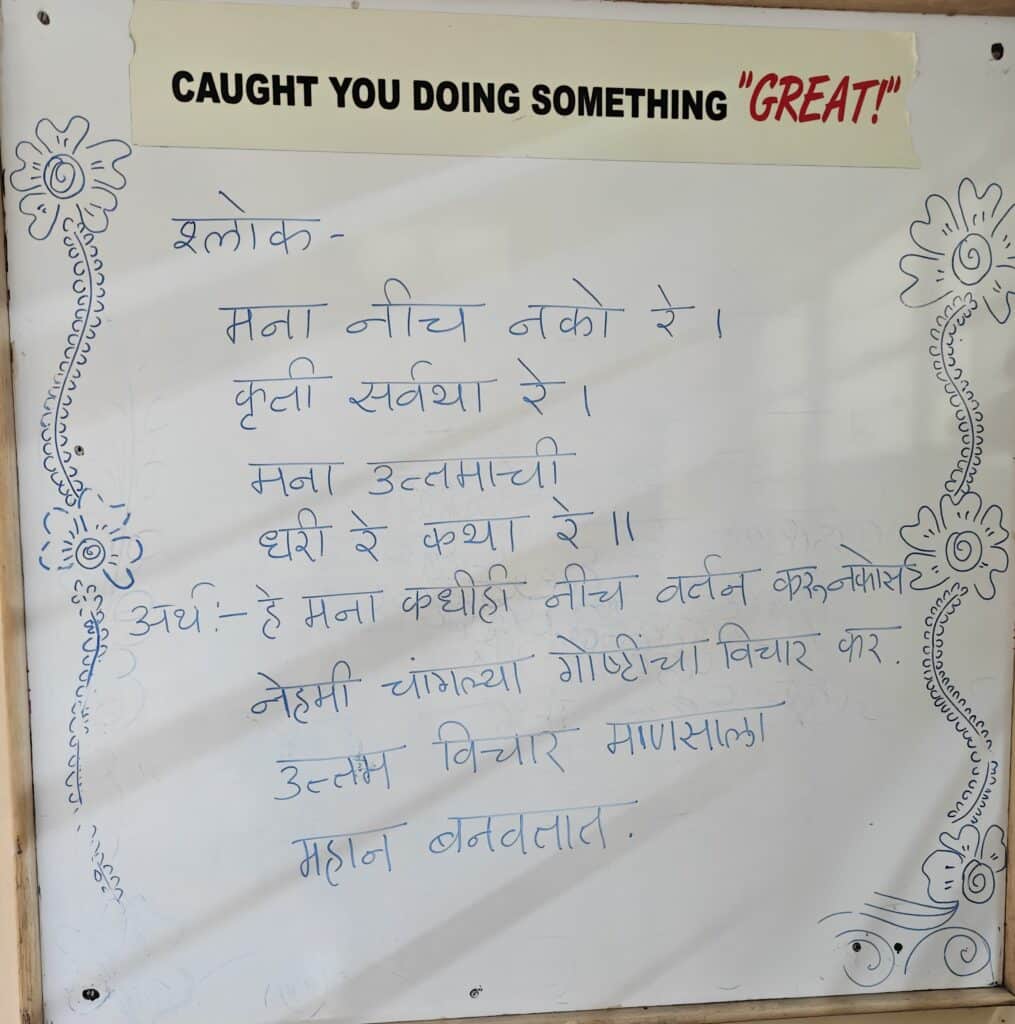 CAUGHT YOU DOING SOMETHING "GREAT!"
श्लोक -
मना नीच नको रे ।
कृती सर्वथा रे ।
मना उत्तमाची
धरी रे कथा रे ॥
अर्थ:- हे मना कधीही नीच वर्तन करू नकोस
नेहमी चांगल्या गोष्टींचा विचार कर.
उत्तम विचार माणसाला
महान बनवतात.